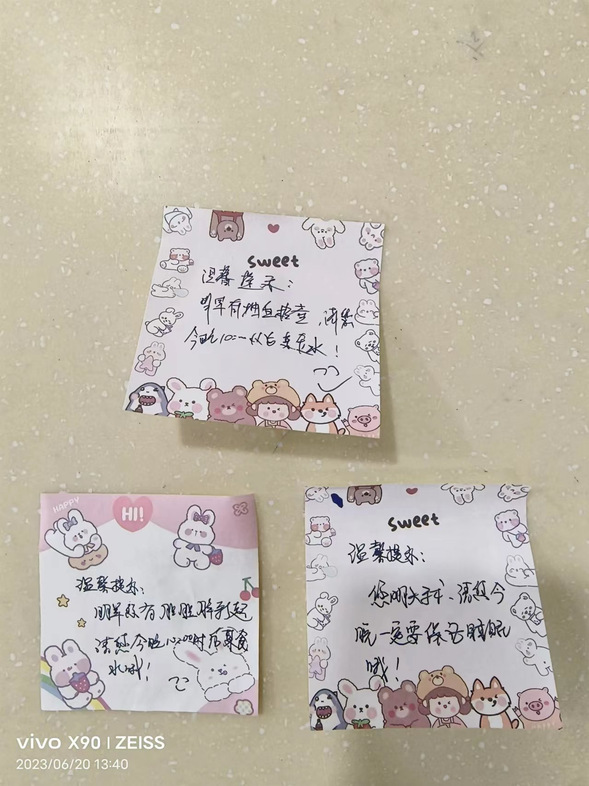 sweet
温馨提示：
明早有抽血检查，请您
今晚10：后禁食水！
HAPPY
HI!
温馨提示：
明早您有肝胆脾彩超
请您今晚12:00时后禁食
水哦！
sweet
温馨提示：
您明天手术、请您今
晚一定要保证睡眠
哦！
vivo X90 | ZEISS
2023/06/20 13:40